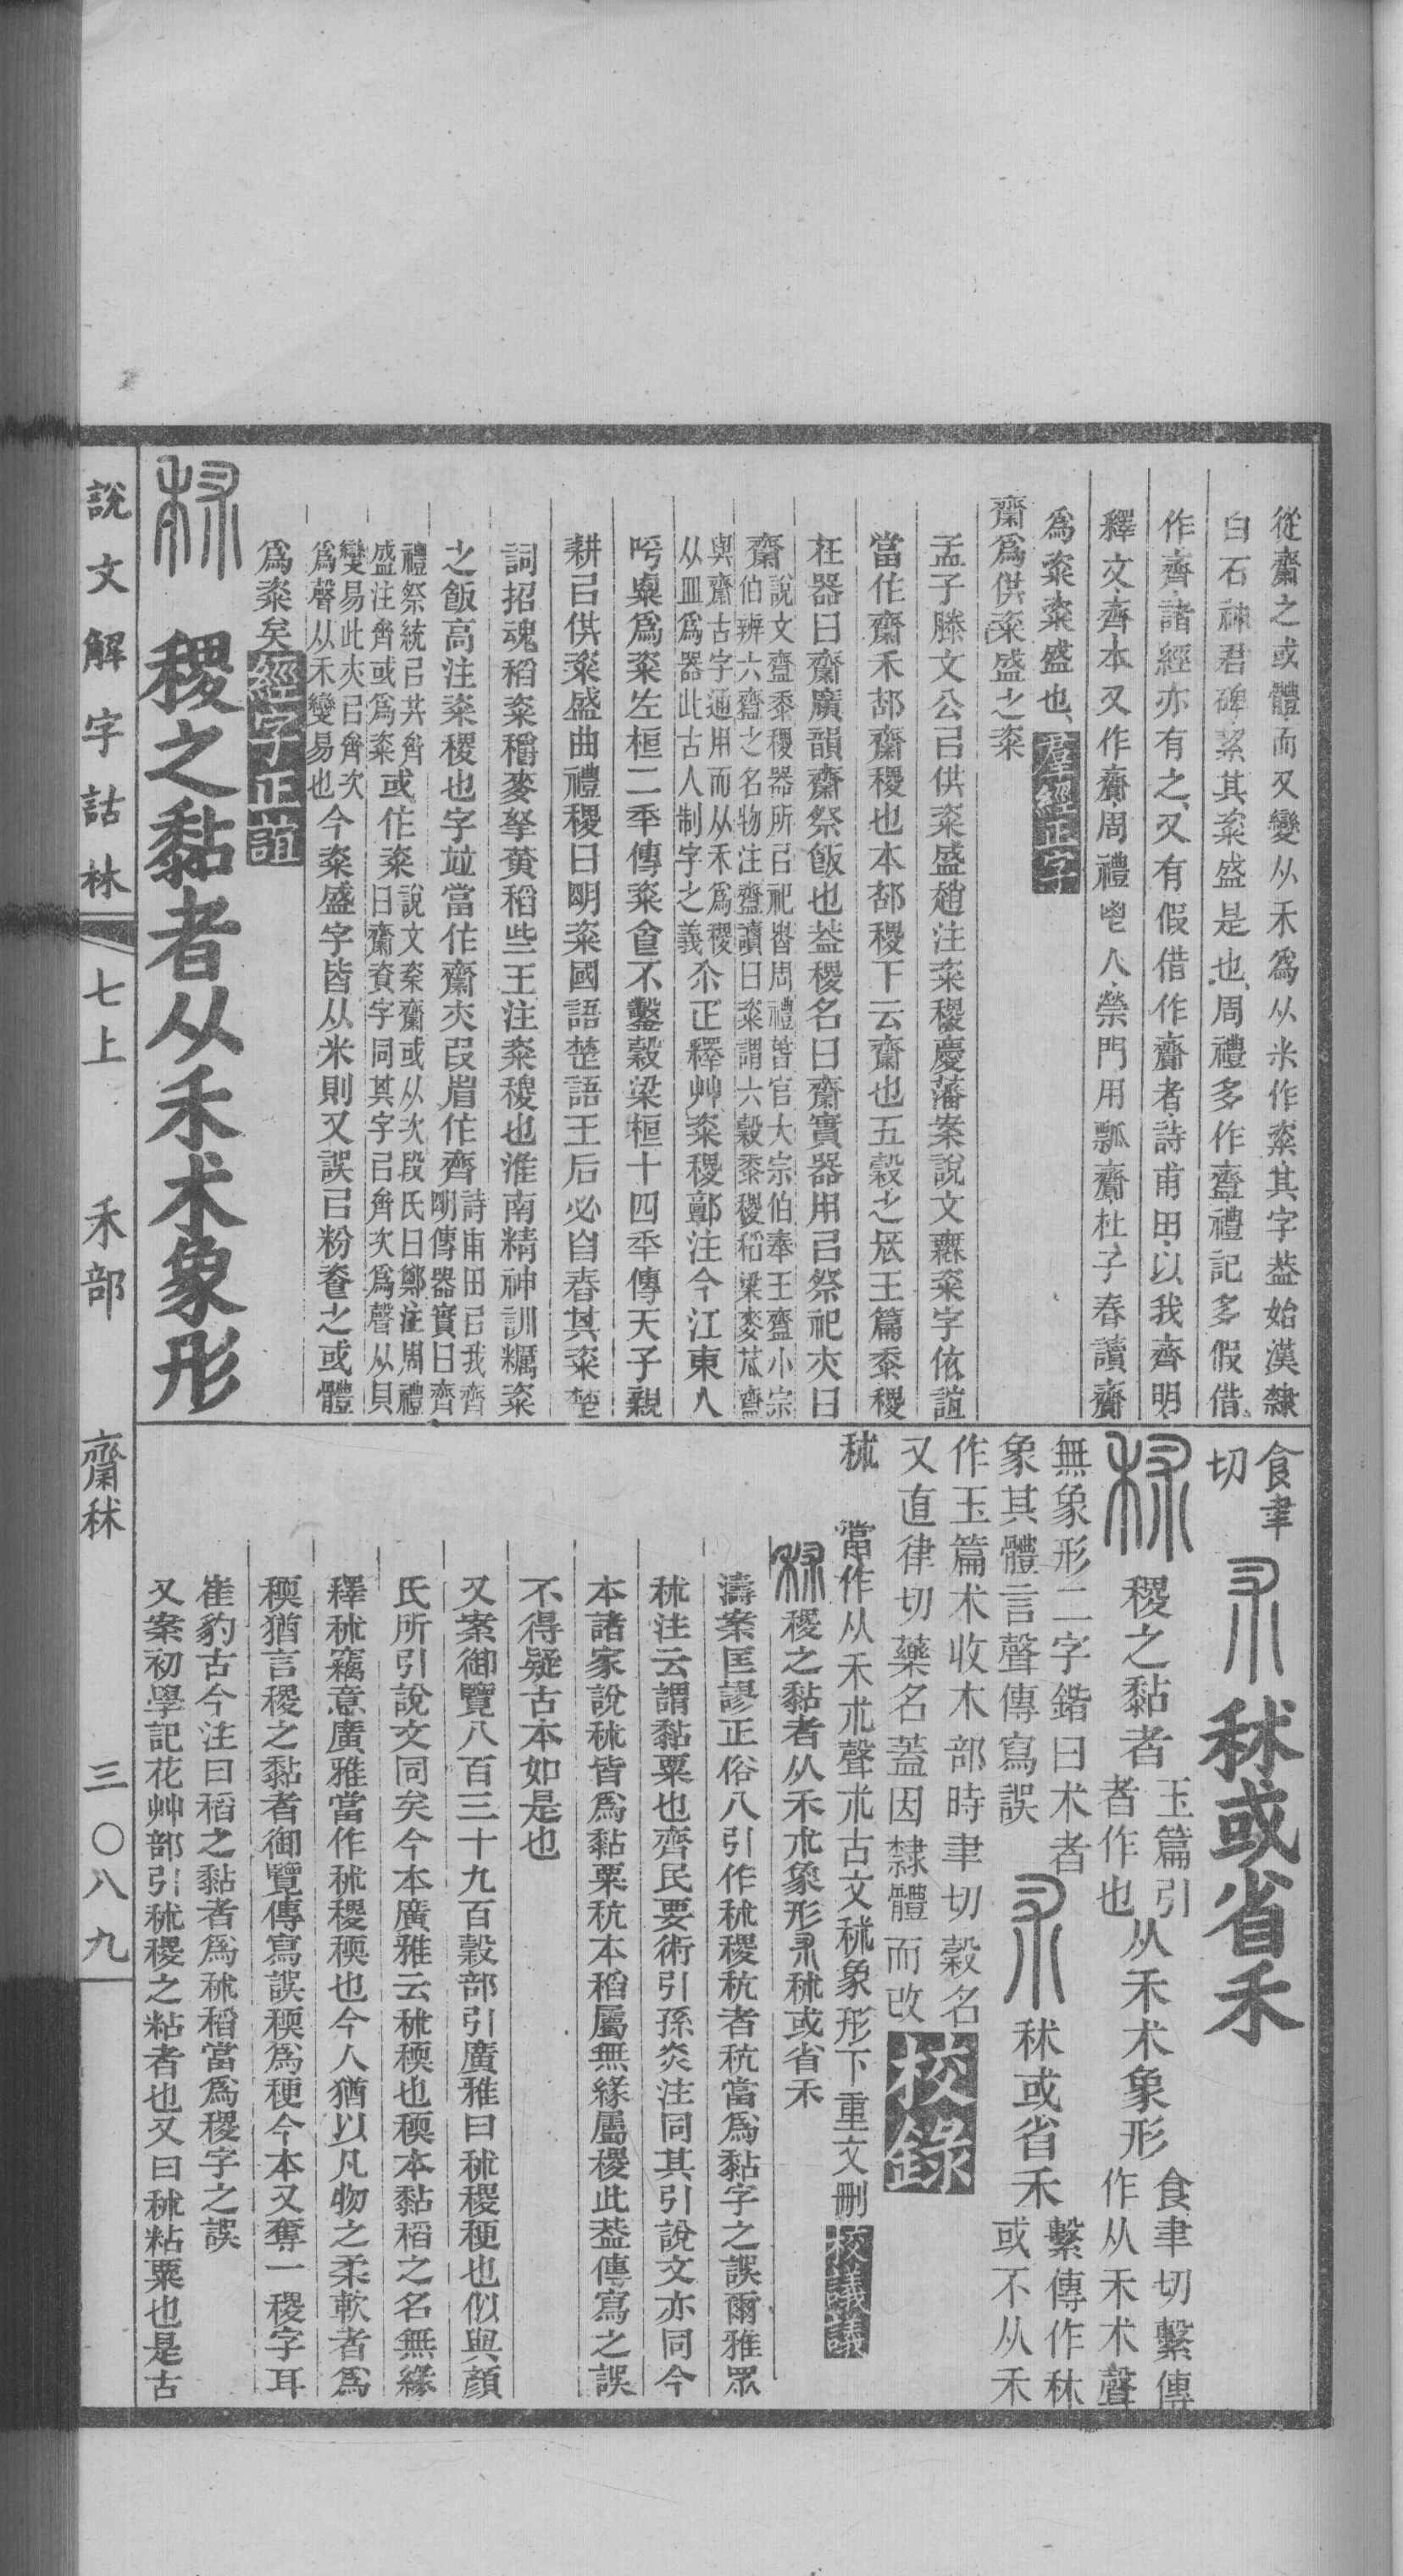 從齋之或體而又變从禾爲从米作粢其字葢始漢隸
白石神君碑絜其粢盛是也周禮多作齍禮記多假借
作齊諸經亦有之又有假借作齎者詩甫田以我齊明
釋文齊本又作齎周禮鬯人禜門用瓢齎杜子春讀齎
爲粢粢盛也羣經正字
齋爲供粢盛之粢
孟子滕文公㠯供粢盛趙注粢稷慶藩案說文無粢字依誼
當作齋禾部齋稷也本部稷下云齋也五穀之長玉篇黍稷
在器曰齋廣韻齋祭飯也葢稷名曰齋實器用㠯祭祀亦曰
齋說文齍黍稷器所㠯祀者周禮皆官大宗伯奉玉齍小宗
伯辨六齍之名物注齍讀曰粢謂六穀黍稷稻粱麥苽齍
與齋古字通用而从禾爲稷
从皿爲器此古人制字之義尒疋釋艸粢稷郭注今江東人
呼粟爲粢左桓二年傳粢食不鑿穀梁桓十四年傳天子親
耕㠯供粢盛曲禮稷曰明粢國語楚語王后必自舂其粢楚
詞招魂稻粢穱麥挐黃稻些王注粢稷也淮南精神訓糲粢
之飯高注粢稷也字竝當作齋亦叚㫺作齊詩甫田㠯我齊
明傳器實曰齊
禮祭統㠯共齊
盛注齊或爲粢或作粢說文案齋或从次段氏曰鄭注周禮
曰齋資字同其字㠯齊次爲聲从貝
變易此亦㠯齊次
爲聲从禾變易也今粢盛字皆从米則又誤㠯粉餈之或體
爲粢矣經字正誼
秫 稷之黏者从禾朮象形
說文解字詁林 七上 禾部 齋秫 三〇八九
食聿
切朮秫或省禾
秫稷之黏者玉篇引
者作也从禾朮象形食聿切繫傳
作从禾朮聲
無象形二字鍇曰朮者
象其體言聲傳寫誤朮秫或省禾繫傳作秫
或不从禾
作玉篇朮收木部時聿切穀名
又直律切藥名蓋因隸體而改校錄
秫 當作从禾朮聲朮古文秫象形下重文刪校議議
秫稷之黏者从禾朮象形朮秫或省禾
濤案匡謬正俗八引作秫稷秔者秔當爲黏字之誤爾雅眾
秫注云謂黏粟也齊民要術引孫炎注同其引說文亦同今
本諸家說秫皆爲黏粟秔本稻屬無緣屬稷此葢傳寫之誤
不得疑古本如是也
又案御覽八百三十九百穀部引廣雅曰秫稷稉也似與顏
氏所引說文同矣今本廣雅云秫稬也稬本黏稻之名無緣
釋秫竊意廣雅當作秫稷稬也今人猶以凡物之柔軟者爲
稬猶言稷之黏者御覽傳寫誤稬爲稉今本又奪一稷字耳
崔豹古今注曰稻之黏者爲秫稻當爲稷字之誤
又案初學記花艸部引秫稷之粘者也又曰秫粘粟也是古